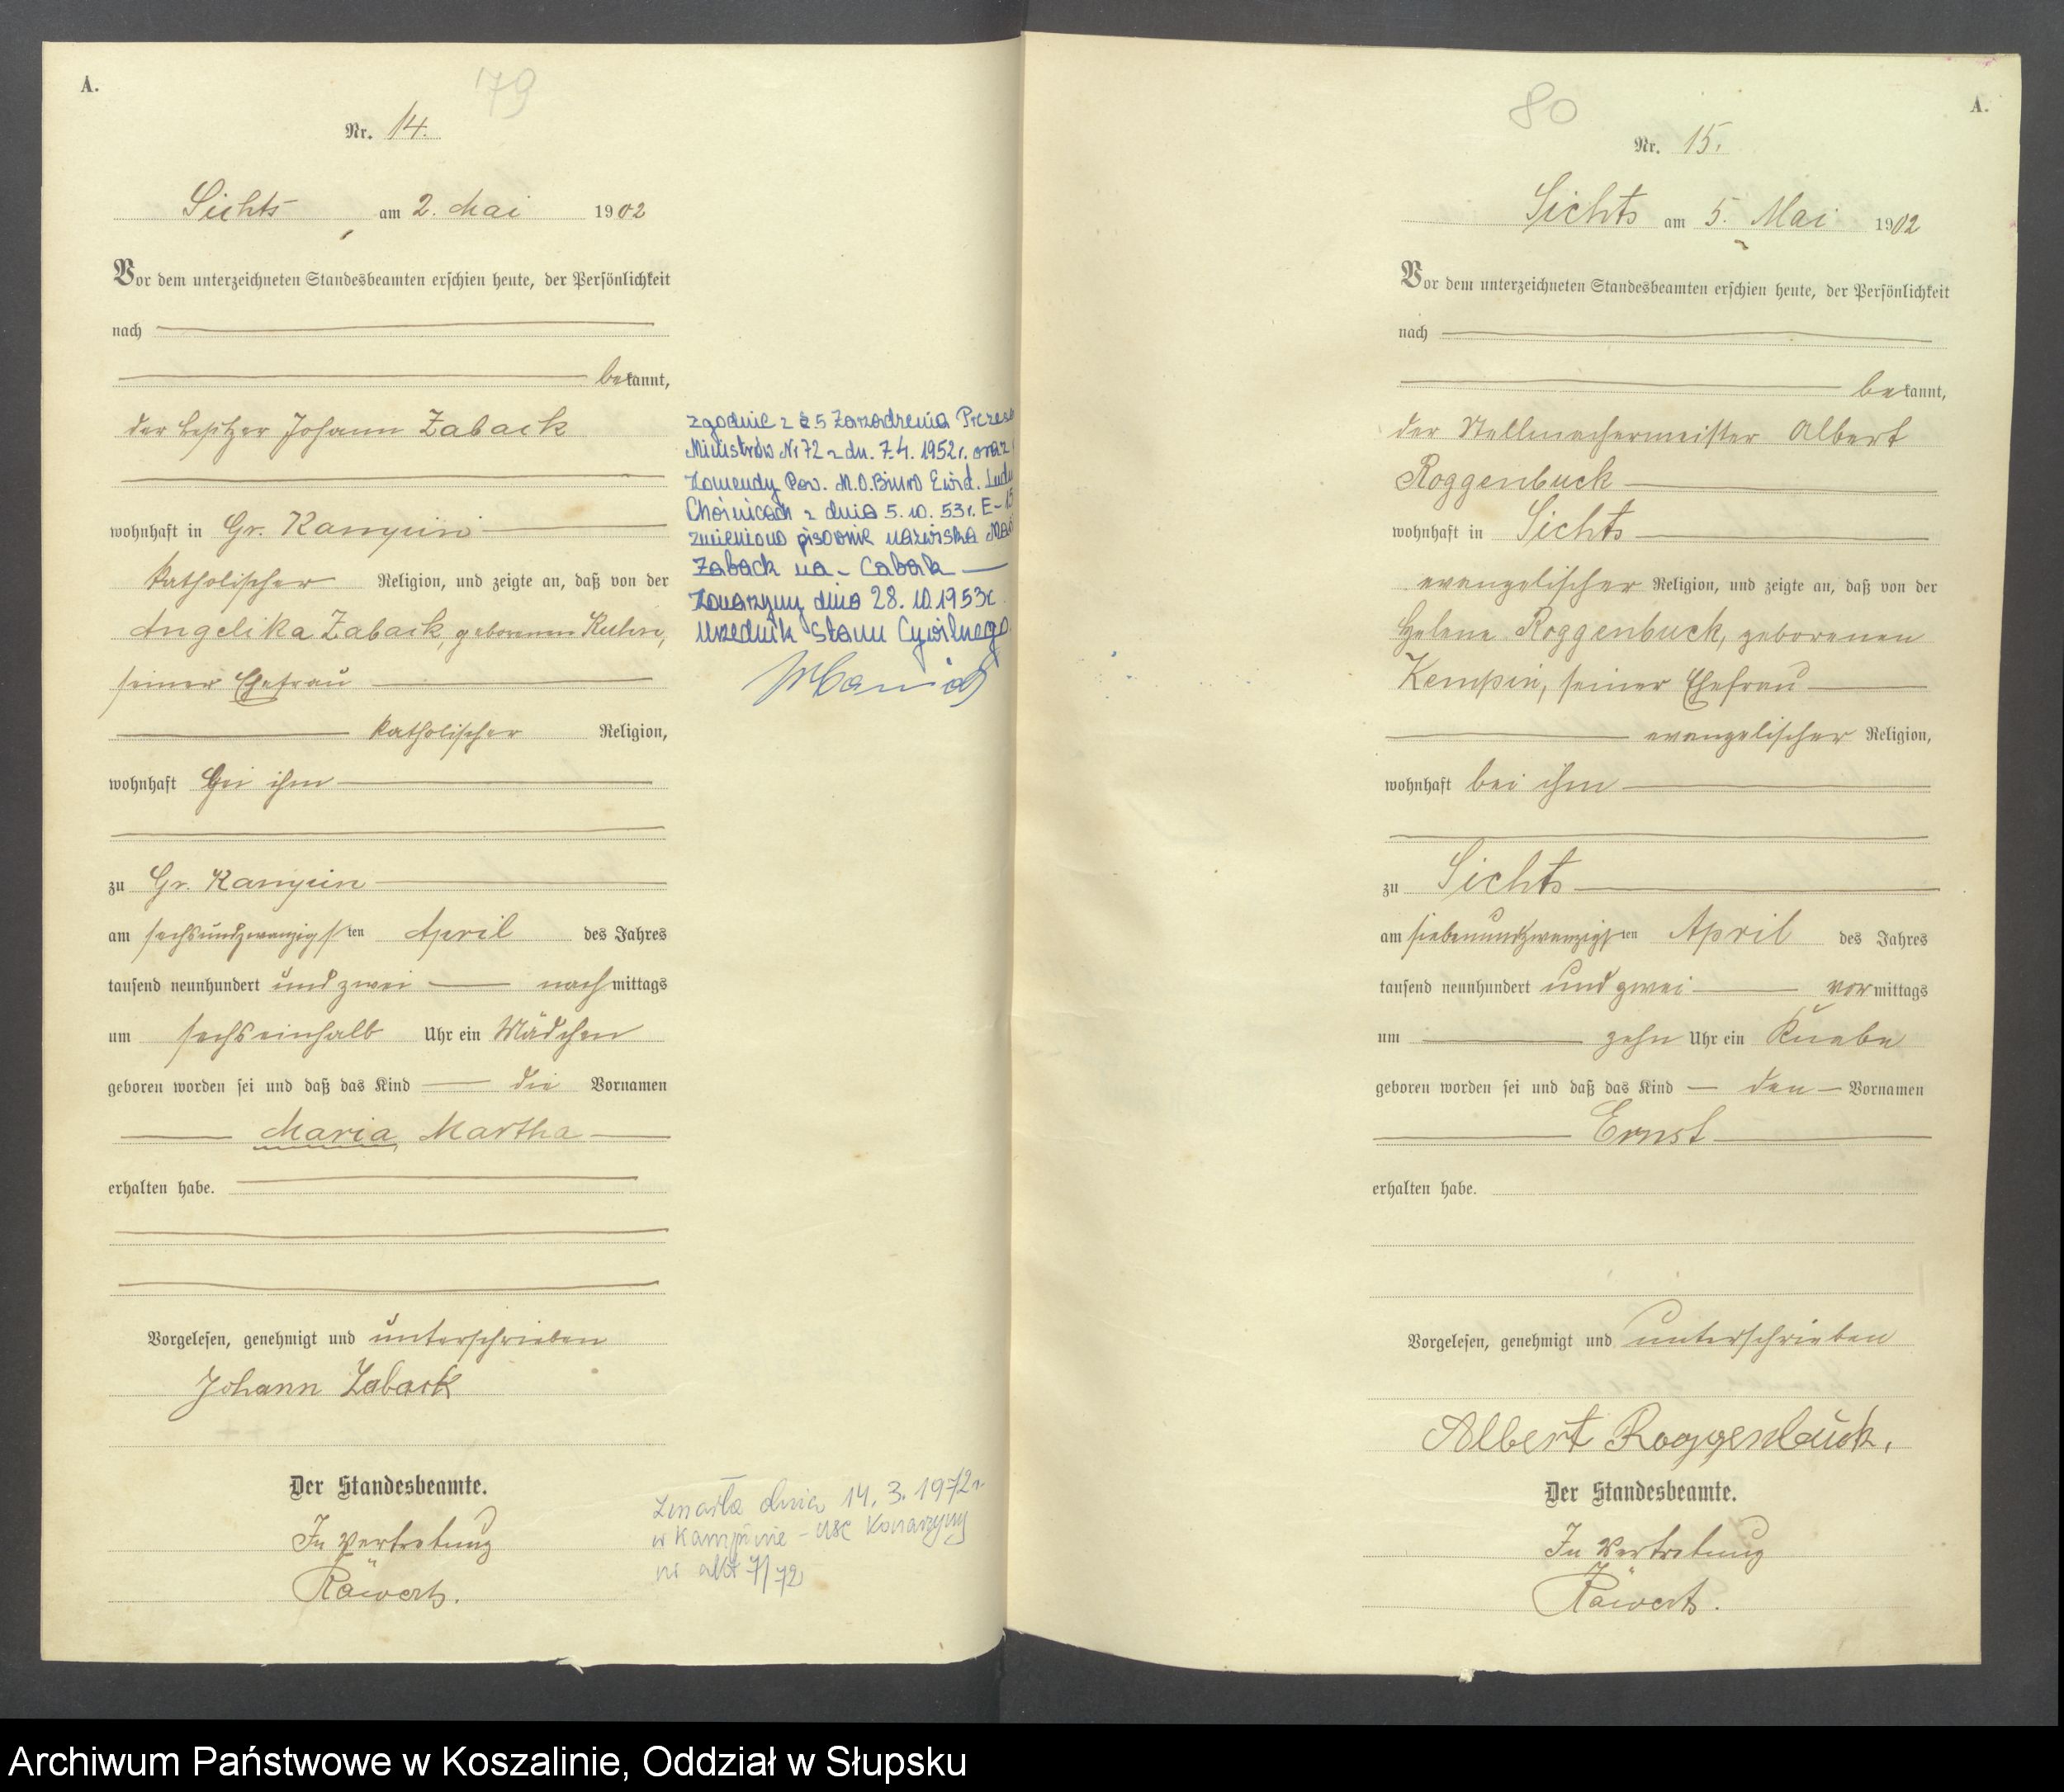 A.
79
Nr. 14.
Sichts am 2. Mai 1902
Vor dem unterzeichneten Standesbeamten erschien heute, der Persönlichkeit
nach
bekannt,
der Besitzer Johann Zaback
wohnhaft in Gr. Kampin
katholischer Religion, und zeigte an, daß von der
Angelika Zaback, geborenen Kuhn,
seiner Ehefrau
katholischer Religion,
wohnhaft bei ihm
zu Gr. Kampin
am sechsundzwanzigsten April des Jahres
tausend neunhundert und zwei nachmittags
um sechseinhalb Uhr ein Mädchen
geboren worden sei und daß das Kind die Vornamen
Maria Martha
erhalten habe.
Vorgelesen, genehmigt und unterschrieben
Johann Zaback
Der Standesbeamte.
In Vertretung
Räwert.
Zgodnie z § 5 Zarządzenia Prezesa
Ministrów Nr 72 z dn. 7.4. 1952 r. oraz
Komendy Pow. M.O. Biuro Ewid. Ludn
Chojnicach z dnia 5.10.53 r. E-15
zmieniono pisownię nazwiska
Zaback na - Cabak
Konarzyny dnia 28.10.1953 r.
Urzędnik Stanu Cywilnego
Zmarła dnia 14.3.1972 r.
w Kampinie - USC Konarzyny
nr akt 7/72
A.
80
Nr. 15.
Sichts am 5. Mai 1902
Vor dem unterzeichneten Standesbeamten erschien heute, der Persönlichkeit
nach
bekannt,
der Stellmachermeister Albert
Roggenbuck
wohnhaft in Sichts
evangelischer Religion, und zeigte an, daß von der
Helene Roggenbuck, geborenen
Kempin, seiner Ehefrau
evangelischer Religion,
wohnhaft bei ihm
zu Sichts
am siebenundzwanzigsten April des Jahres
tausend neunhundert und zwei vormittags
um zehn Uhr ein Knabe
geboren worden sei und daß das Kind den Vornamen
Ernst
erhalten habe.
Vorgelesen, genehmigt und unterschrieben
Albert Roggenbuck.
Der Standesbeamte.
In Vertretung
Räwert.
Archiwum Państwowe w Koszalinie, Oddział w Słupsku